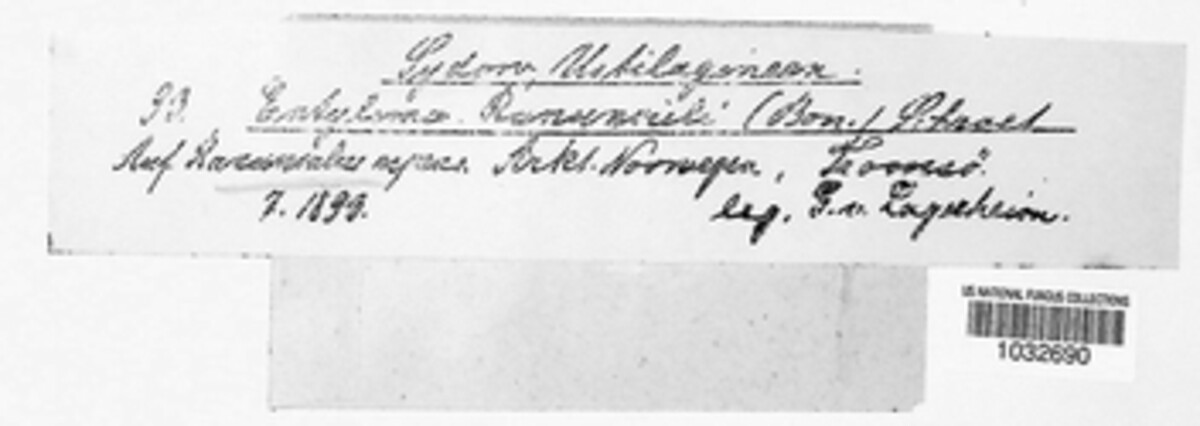 Sydow, Ustilagineen.
93. Entyloma Ranunculi (Bon.) Schroet
Auf Ranunculus repens. Arkt. Norwegen, Tromsö.
7. 1899.
leg. G. v. Lagerheim.
US NATIONAL FUNGUS COLLECTIONS
1032690